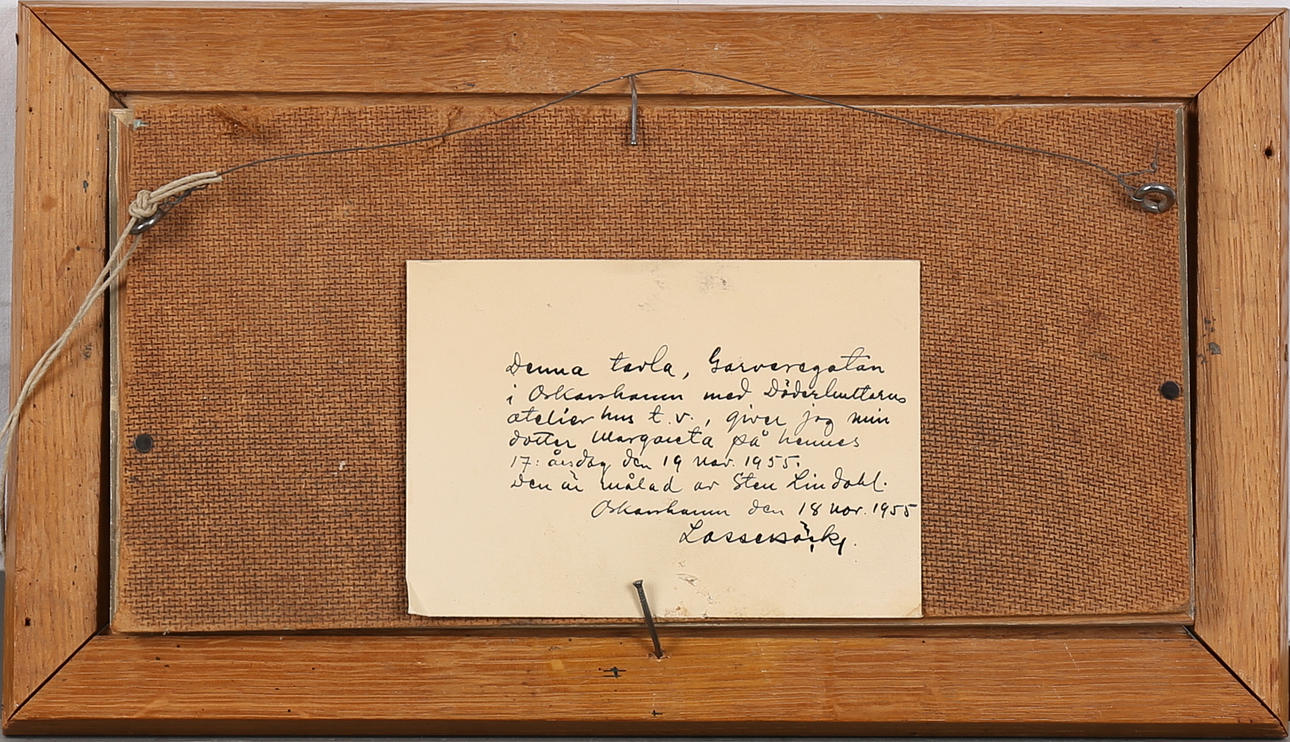 Denna tavla, Garvaregatan
i Oskarshamn med Döderhultarns
atelier hus t.v., giver jag min
dotter Margareta på hennes
17: årsdag den 19 nov. 1955.
Den är målad av Sten Lindahl.
Oskarshamn den 18 nov. 1955